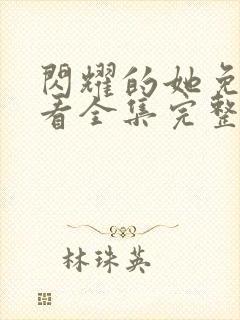 閃耀的她免
看全集完整
林珠英